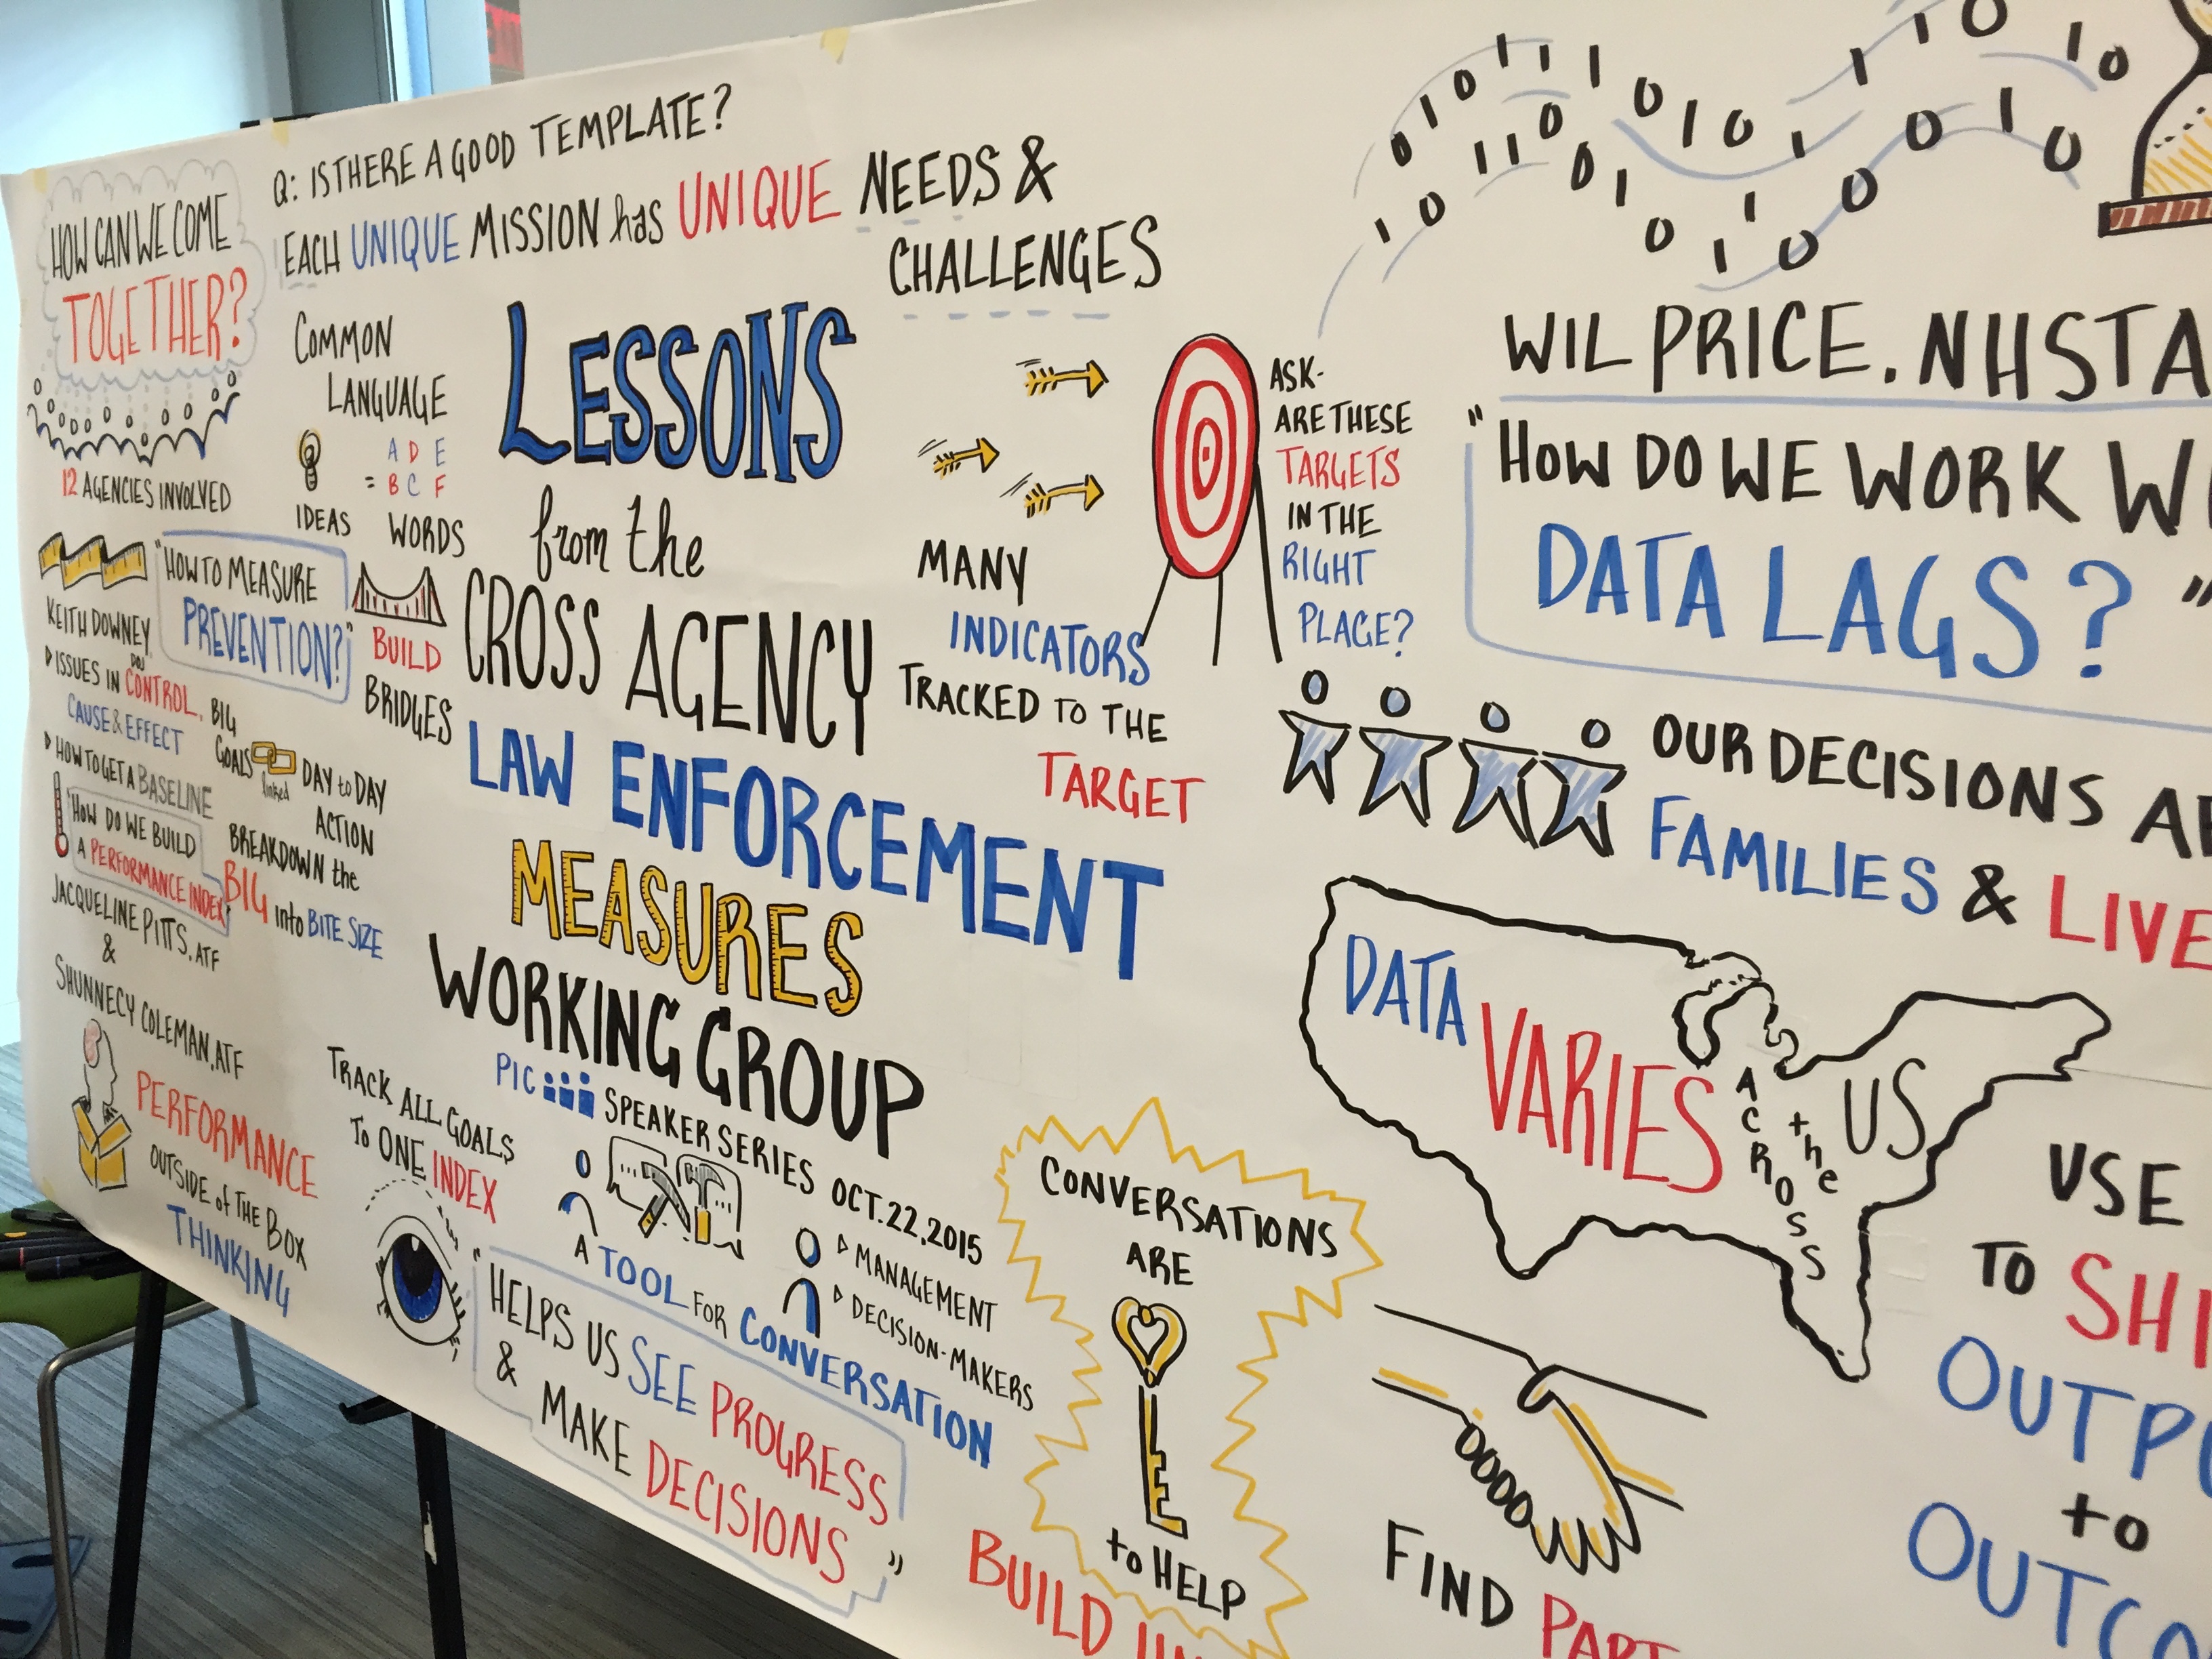 HOW CAN WE COME
TOGETHER?
12 AGENCIES INVOLVED
Q: IS THERE A GOOD TEMPLATE?
EACH UNIQUE MISSION has UNIQUE NEEDS &
CHALLENGES
COMMON
LANGUAGE
A D E
= B C F
IDEAS WORDS
"HOW TO MEASURE
PREVENTION?"
KEITH DOWNEY,
DOJ
ISSUES IN CONTROL,
CAUSE & EFFECT
HOW TO GET A BASELINE
"HOW DO WE BUILD
A PERFORMANCE INDEX"
JACQUELINE PITTS, ATF
&
SHUNNECY COLEMAN, ATF
BUILD
BRIDGES
BIG
GOALS
linked
DAY to DAY
ACTION
BREAKDOWN the
BIG into BITE SIZE
PERFORMANCE
OUTSIDE of THE BOX
THINKING
LESSONS
from the
CROSS AGENCY
LAW ENFORCEMENT
MEASURES
WORKING GROUP
PIC SPEAKER SERIES OCT. 22, 2015
TRACK ALL GOALS
TO ONE INDEX
A TOOL FOR CONVERSATION
MANAGEMENT
DECISION-MAKERS
"HELPS US SEE PROGRESS
& MAKE DECISIONS"
MANY
INDICATORS
TRACKED TO THE
TARGET
ASK-
ARE THESE
TARGETS
IN THE
RIGHT
PLACE?
CONVERSATIONS
ARE
KEY
to HELP
BUILD
0 1 0 1 1 1 0 1 0 1 1 0 1 0
1 0 1 1 0 0 1 0 1 1 0 1 0 0 1 0
WIL PRICE. NHSTA
"HOW DO WE WORK
DATA LAGS?"
OUR DECISIONS
FAMILIES &
DATA
VARIES
ACROSS
the
US
FIND
USE
TO
to